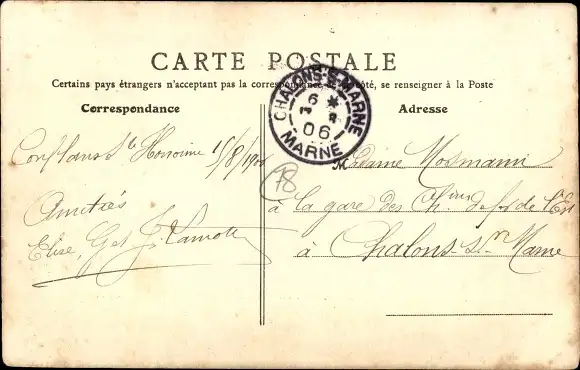 CARTE POSTALE
Certains pays étrangers n'acceptant pas la correspondance de ce côté, se renseigner à la Poste
Correspondance
Adresse
CHALONS-S-MARNE
6 *
06
MARNE
Conflans Ste Honorine 15/8/1906
Amitiés
Elise,
78
Madame Mosmann
à la gare des Ch. ins de fer de l'Est
à Chalons-s-Marne